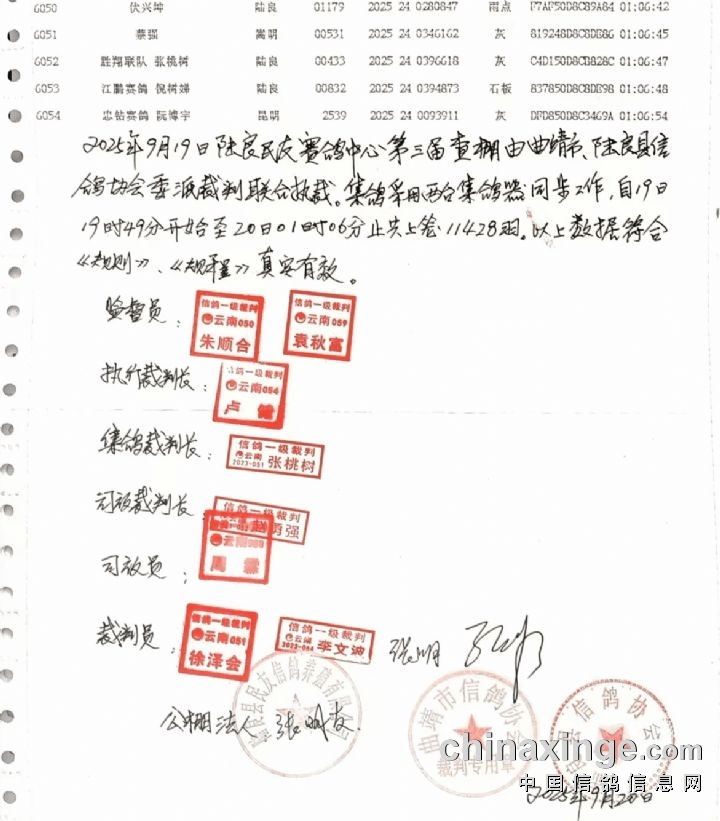 6050 伏兴坤 陆良 01179 2025 24 0280847 雨点 F7AF50D8C89A84 01:06:42
6051 蔡强 嵩明 00531 2025 24 0346162 灰 819248D8C8DB86 01:06:45
6052 胜翔联队 张桃树 陆良 00433 2025 24 0396618 灰 C4D150D8CD828C 01:06:47
6053 江鹏赛鸽 倪树娣 陆良 00832 2025 24 0394873 石板 837850D8C8DB98 01:06:48
6054 忠钻赛鸽 阮博宇 昆明 2539 2025 24 0093911 灰 DFD850D8C3469A 01:06:54
2025年9月19日陆良民友赛鸽中心第三届查棚由曲靖市、陆良县信
鸽协会委派裁判联合执裁。集鸽采用两台集鸽器同步工作,自19日
19时49分开始至20日01时06分止共上笼11428羽。以上数据符合
《规则》、《规程》真实有效。
监督员:
信鸽一级裁判
云南050
朱顺合
信鸽一级裁判
云南059
袁秋富
执行裁判长:
信鸽一级裁判
云南054
卢
集鸽裁判长:
信鸽一级裁判
云南
2023-051 张桃树
司放裁判长:
信鸽一级裁判
赵勇强
司放员:
云南
周霖
裁判员:
信鸽一级裁判
云南051
徐泽会
信鸽一级裁判
云南 李文迪
张明
公棚法人 张明友
陆良县民友信鸽养殖有限公司
曲靖市信鸽协会
裁判专用章
信鸽协会
chinaxinge.com
中国信鸽信息网
2025年9月20日